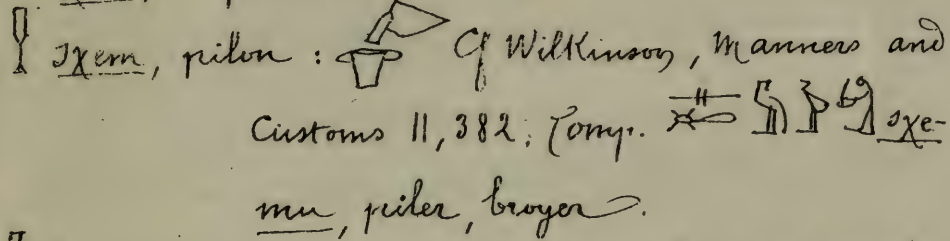 sχem, pilon : Cf Wilkinson, Manners and
Customs II, 382; Comp. sχe-
mu, piler, broyer.